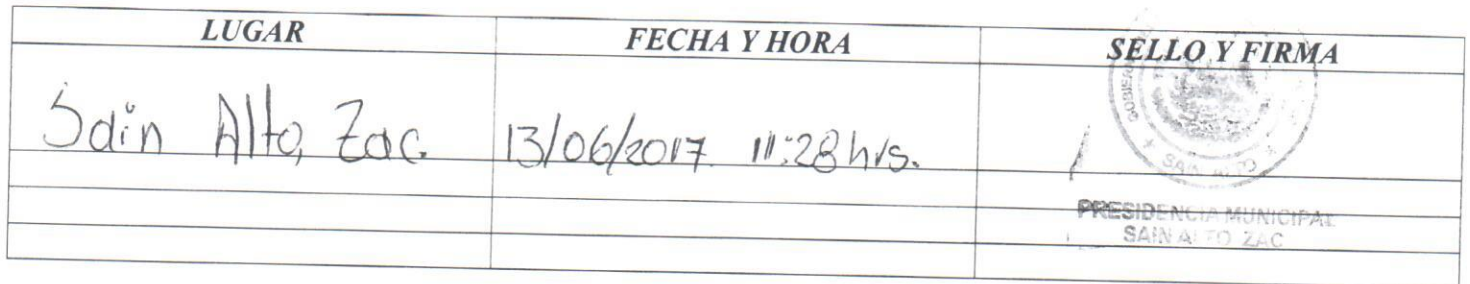 LUGAR FECHA Y HORA SELLO Y FIRMA
Sain Alto, Zac. 13/06/2017. 11:28 hrs.
SAIN ALTO
PRESIDENCIA MUNICIPAL
SAIN ALTO ZAC